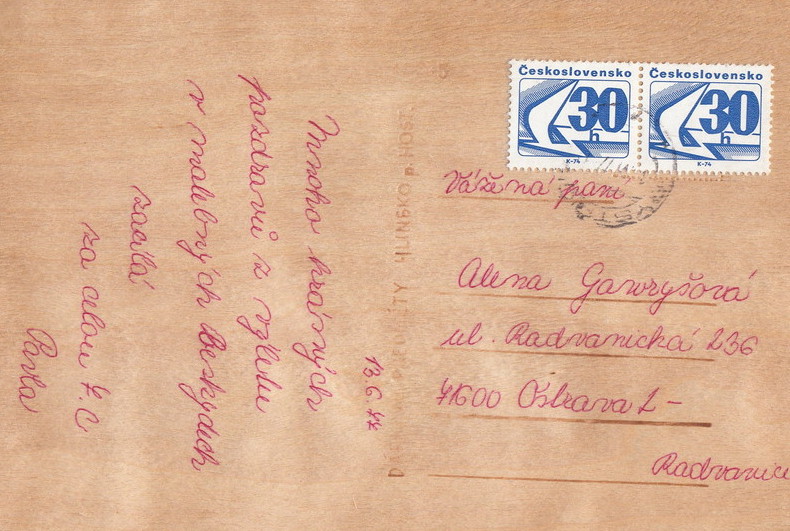 Československo
30
h
K-74
Československo
30
h
K-74
Vážená paní
Alena Gawryšová
ul. Radvanická 236
71600 Ostrava 2-
Radvanice
HLINSKO p. HOST.
13.6.77
Mnoho krásných
pozdravů z výletu
v malebných Beskydech
zasílá
za celou
Pavla